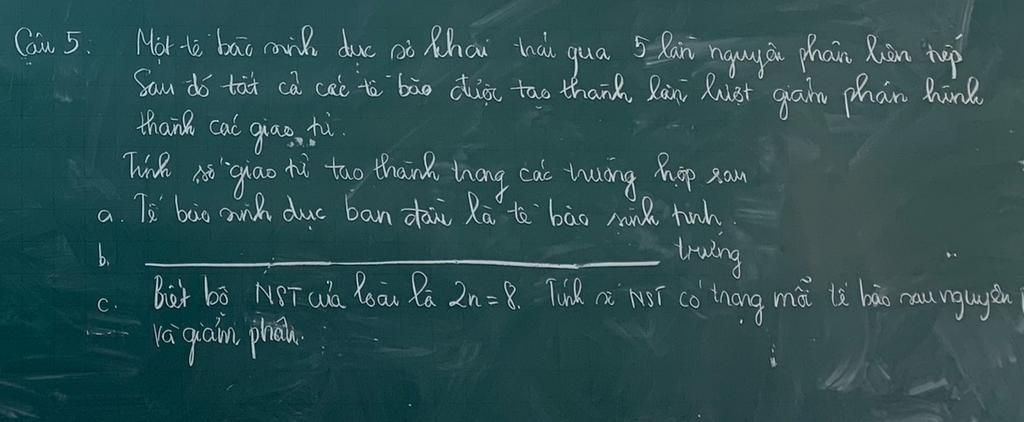 Câu 5. Một tế bào sinh dục sơ khai trải qua 5 lần nguyên phân liên tiếp
Sau đó tất cả các tế bào được tạo thành lần lượt giảm phân hình
thành các giao tử.
Tính số giao tử tạo thành trong các trường hợp sau
a. Tế bào sinh dục ban đầu là tế bào sinh tinh.
b. ____________________ trứng
c. Biết bộ NST của loài là 2n = 8. Tính số NST có trong mỗi tế bào sau nguyên
và giảm phân.